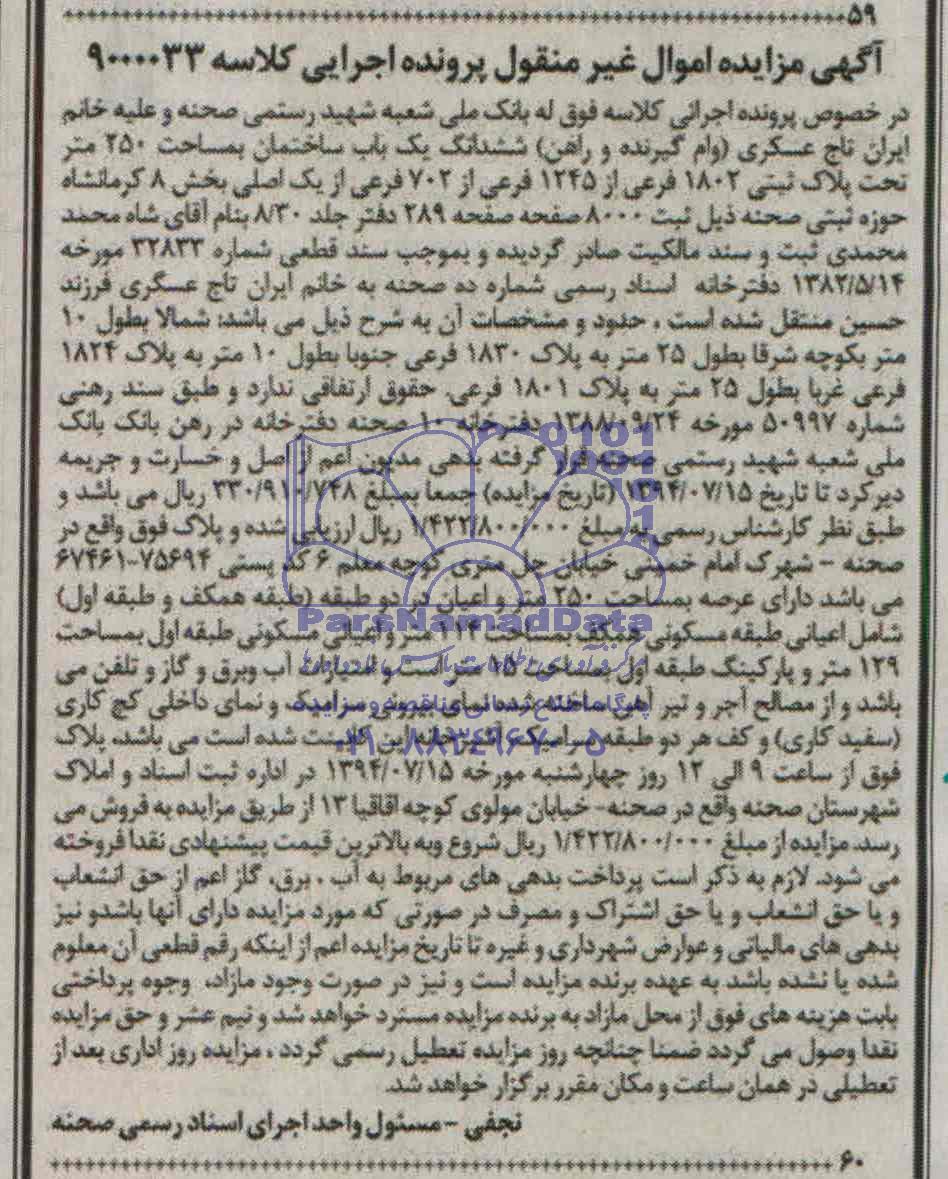 ۵۹
آگهی مزایده اموال غیر منقول پرونده اجرایی کلاسه ۹۰۰۰۰۳۳
در خصوص پرونده اجرائی کلاسه فوق له بانک ملی شعبه شهید رستمی صحنه و علیه خانم
ایران تاج عسکری (وام گیرنده و راهن) ششدانگ یک باب ساختمان بمساحت ۲۵۰ متر
تحت پلاک ثبتی ۱۸۰۲ فرعی از ۱۲۴۵ فرعی از ۷۰۲ فرعی از یک اصلی بخش ۸ کرمانشاه
حوزه ثبتی صحنه ذیل ثبت ۸۰۰۰ صفحه صفحه ۲۸۹ دفتر جلد ۸/۳۰ بنام آقای شاه محمد
محمدی ثبت و سند مالکیت صادر گردیده و بموجب سند قطعی شماره ۳۲۸۳۳ مورخه
۱۳۸۲/۵/۱۴ دفترخانه اسناد رسمی شماره ده صحنه به خانم ایران تاج عسگری فرزند
حسین منتقل شده است ، حدود و مشخصات آن به شرح ذیل می باشد: شمالا بطول ۱۰
متر بکوچه شرقا بطول ۲۵ متر به پلاک ۱۸۳۰ فرعی جنوبا بطول ۱۰ متر به پلاک ۱۸۲۴
فرعی غربا بطول ۲۵ متر به پلاک ۱۸۰۱ فرعی. حقوق ارتفاقی ندارد و طبق سند رهنی
شماره ۵۰۹۹۷ مورخه ۱۳۸۸/۰۹/۲۴ دفترخانه ۱۰ صحنه دفترخانه در رهن بانک بانک
ملی شعبه شهید رستمی صحنه قرار گرفته بدهی مدیون اعم از اصل و خسارت و جریمه
دیرکرد تا تاریخ ۱۳۹۴/۰۷/۱۵ (تاریخ مزایده) جمعا بمبلغ ۳۳۰/۹۱۰/۷۴۸ ریال می باشد و
طبق نظر کارشناس رسمی به مبلغ ۱/۴۲۲/۸۰۰/۰۰۰ ریال ارزیابی شده و پلاک فوق واقع در
صحنه - شهرک امام خمینی خیابان چل متری کوچه معلم ۶ کد پستی ۷۵۶۹۴-۶۷۴۶۱
می باشد دارای عرصه بمساحت ۲۵۰ متر و اعیان در دو طبقه (طبقه همکف و طبقه اول)
شامل اعیانی طبقه مسکونی همکف بمساحت متر و اعیانی مسکونی طبقه اول بمساحت
۱۲۹ متر و پارکینگ طبقه اول بمساحت ۱۵ متر است و امتیازات آب وبرق و گاز و تلفن می
باشد و از مصالح آجر و تیر آهن ساخته شده نمای بیرونی سرامیک و نمای داخلی گچ کاری
(سفید کاری) و کف هر دو طبقه سرامیک آشپزخانه این کابینت شده است می باشد، پلاک
فوق از ساعت ۹ الی ۱۲ روز چهارشنبه مورخه ۱۳۹۴/۰۷/۱۵ در اداره ثبت اسناد و املاک
شهرستان صحنه واقع در صحنه- خیابان مولوی کوچه اقاقیا ۱۳ از طریق مزایده به فروش می
رسد. مزایده از مبلغ ۱/۴۲۲/۸۰۰/۰۰۰ ریال شروع وبه بالاترین قیمت پیشنهادی نقدا فروخته
می شود. لازم به ذکر است پرداخت بدهی های مربوط به آب ، برق، گاز اعم از حق انشعاب
و یا حق انشعاب و یا حق اشتراک و مصرف در صورتی که مورد مزایده دارای آنها باشدو نیز
بدهی های مالیاتی و عوارض شهرداری و غیره تا تاریخ مزایده اعم از اینکه رقم قطعی آن معلوم
شده یا نشده باشد به عهده برنده مزایده است و نیز در صورت وجود مازاد، وجوه پرداختی
بابت هزینه های فوق از محل مازاد به برنده مزایده مسترد خواهد شد و نیم عشر و حق مزایده
نقدا وصول می گردد ضمنا چنانچه روز مزایده تعطیل رسمی گردد ، مزایده روز اداری بعد از
تعطیلی در همان ساعت و مکان مقرر برگزار خواهد شد.
نجفی - مسئول واحد اجرای اسناد رسمی صحنه
۶۰
ParsNamadData
پایگاه اطلاع رسانی مناقصه و مزایده
۰۲۱-۸۸۳۴۹۶۷۰-۵